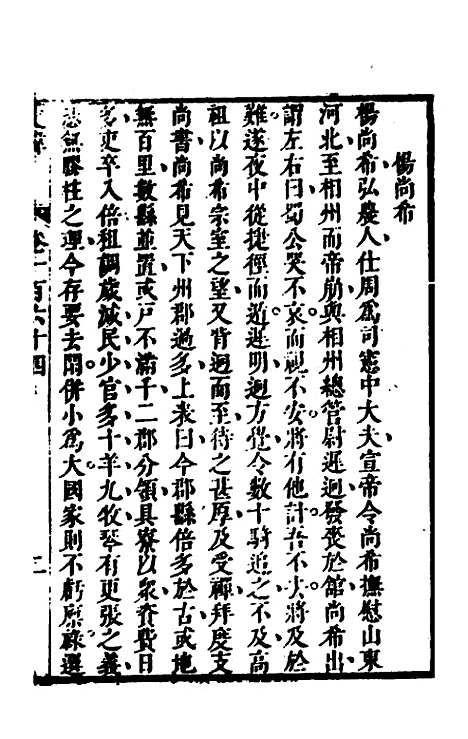 楊尚希
楊尚希弘農人仕周爲司憲中大夫宣帝令尚希撫慰山東
河北至相州而帝崩與相州總管尉遲迥發喪於館尚希出
謂左右曰蜀公哭不哀而視不安將有他計吾不去將及於
難遂夜中從捷徑而遁遲明迥方覺令數十騎追之不及高
祖以尚希宗室之望又背迥而至待之甚厚及受禪拜度支
尚書尚希見天下州郡過多上表曰今郡縣倍多於古或地
無百里數縣並置或戶不滿千二郡分領具寮以衆資費日
多吏卒人倍租調歲減民少官多十羊九牧琴有更張之義
瑟無膠柱之理今存要去閒併小爲大國家則不虧粟祿選
卷一百六十四
二